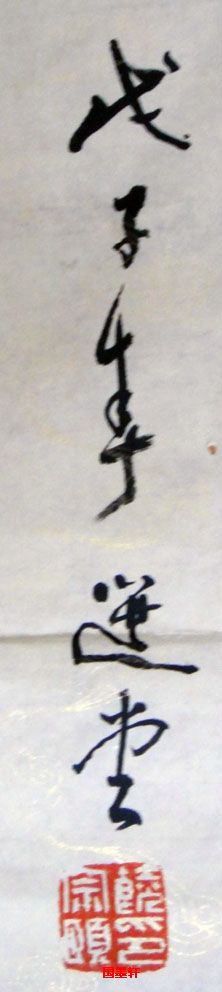 戊子年選堂
饒宗頤印
国墨轩